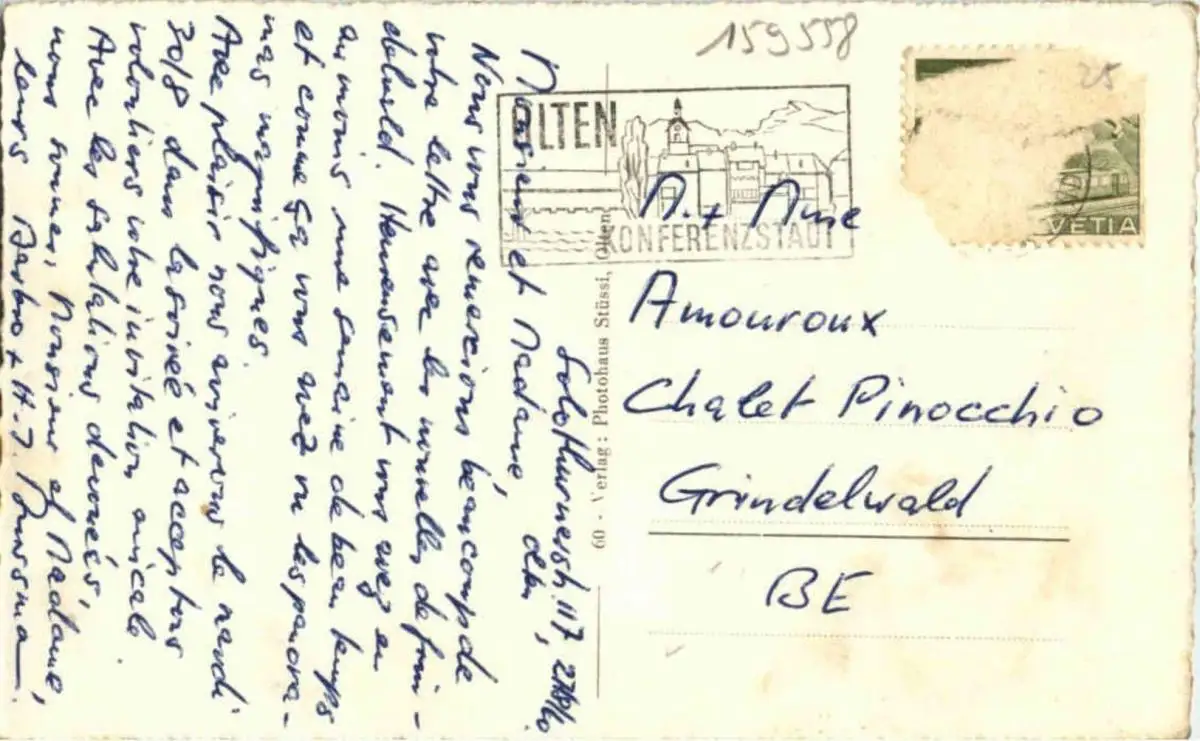 159558
25
OLTEN
KONFERENZSTADT
HELVETIA
60 - Verlag: Photohaus Stüssi, Olten
M. + Mme
Amouroux
Chalet Pinocchio
Grindelwald
BE
Solothurnerstr. 117
Olten, 27/8/60
Monsieur et Madame,
Nous vous remercions beaucoup de
votre lettre avec les nouvelles de Grin-
delwald. Heureusement vous avez eu
au moins une semaine de beau temps
et comme ça vous avez vu les panora-
mas magnifiques.
Avec plaisir nous arriverons le mardi
30/8 dans la soirée et acceptons
volontiers votre invitation amicale.
Avec les salutations dévouées,
nous sommes, Monsieur et Madame,
leurs + H. J.